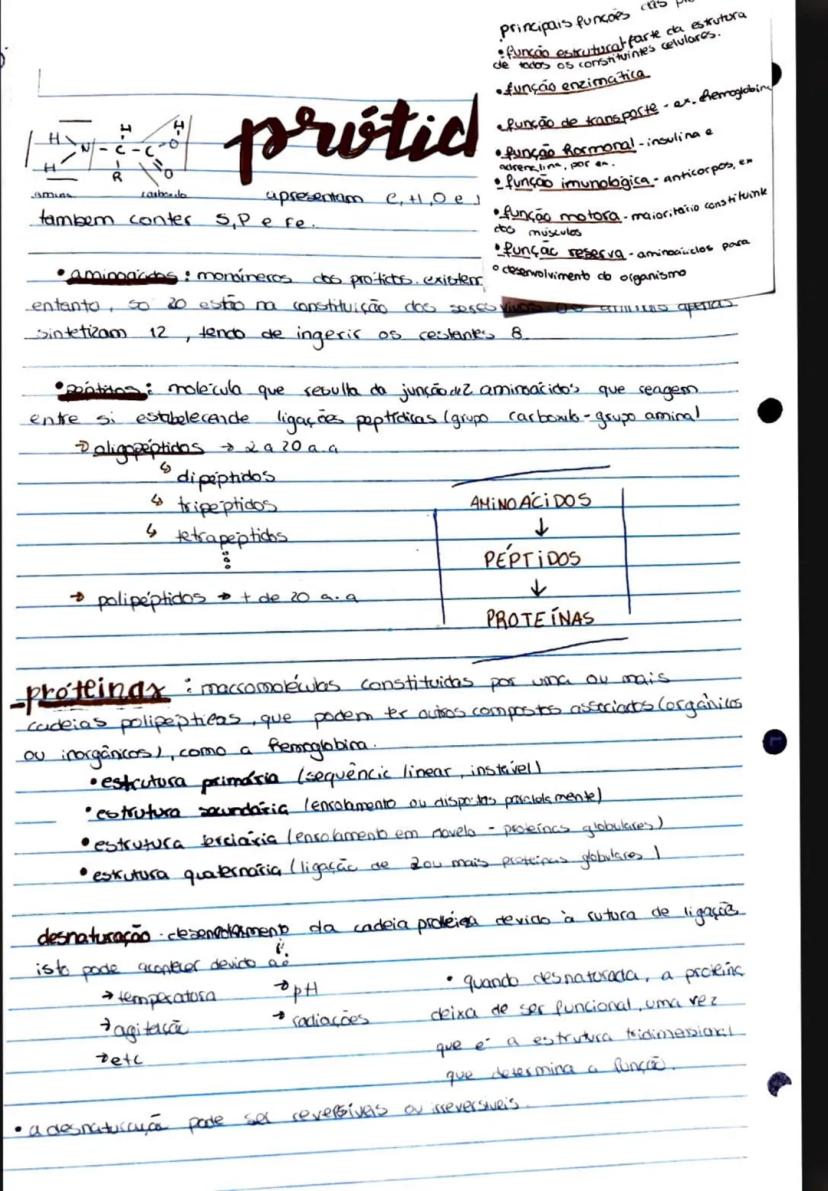 prótid
H
H
N - C - C
H
R
O
H
O
amina
carboxilo
apresentam C, H, O e
tambem conter S, P e Fe.
principais funcoes das
• função estrutural - parte da estrutura
de todos os constituintes celulares.
• função enzimática
• função de transporte - ex. hemoglobina
• função hormonal - insulina e
adrenalina, por ex.
• função imunológica - anticorpos, ex
• função motora - maioritário constituinte
dos músculos
• função reserva - aminoácidos para
o desenvolvimento do organismo
• aminoácidos: monómeros dos prótidos. existem
entanto, so 20 estão na constituição dos seres vivos. os animais apenas
sintetizam 12, tendo de ingerir os restantes 8.
• péptidos: molécula que resulta da junção de 2 aminoácidos que reagem
entre si estabelecende ligações peptídicas (grupo carboxilo - grupo amina)
→ oligopéptidos → 2 a 20 a.a
↳ dipéptidos
↳ tripéptidos
↳ tetrapéptidos
→ polipéptidos → + de 20 a.a
AMINOÁCIDOS
↓
PÉPTIDOS
↓
PROTEÍNAS
- proteínas: macromoléculas constituidas por uma ou mais
cadeias polipépticas, que podem ter outros compostos associados (orgânicos
ou inorgânicos), como a hemoglobina.
• estrutura primária (sequência linear, instável)
• estrutura secundária (enrolamento ou dispostas paralelamente)
• estrutura terciária (enrolamento em novelo - proteínas globulares)
• estrutura quaternária (ligação de 2 ou mais proteínas globulares)
desnaturação: desenrolamento da cadeia proteica devido à rutura de ligações
isto pode acontecer devido a:
→ temperatura
→ agitação
→ etc
→ pH
→ radiações
• quando desnaturada, a proteína
deixa de ser funcional, uma vez
que é a estrutura tridimensional
que determina a função.
• a desnaturação pode ser reversíveis ou irreversíveis.